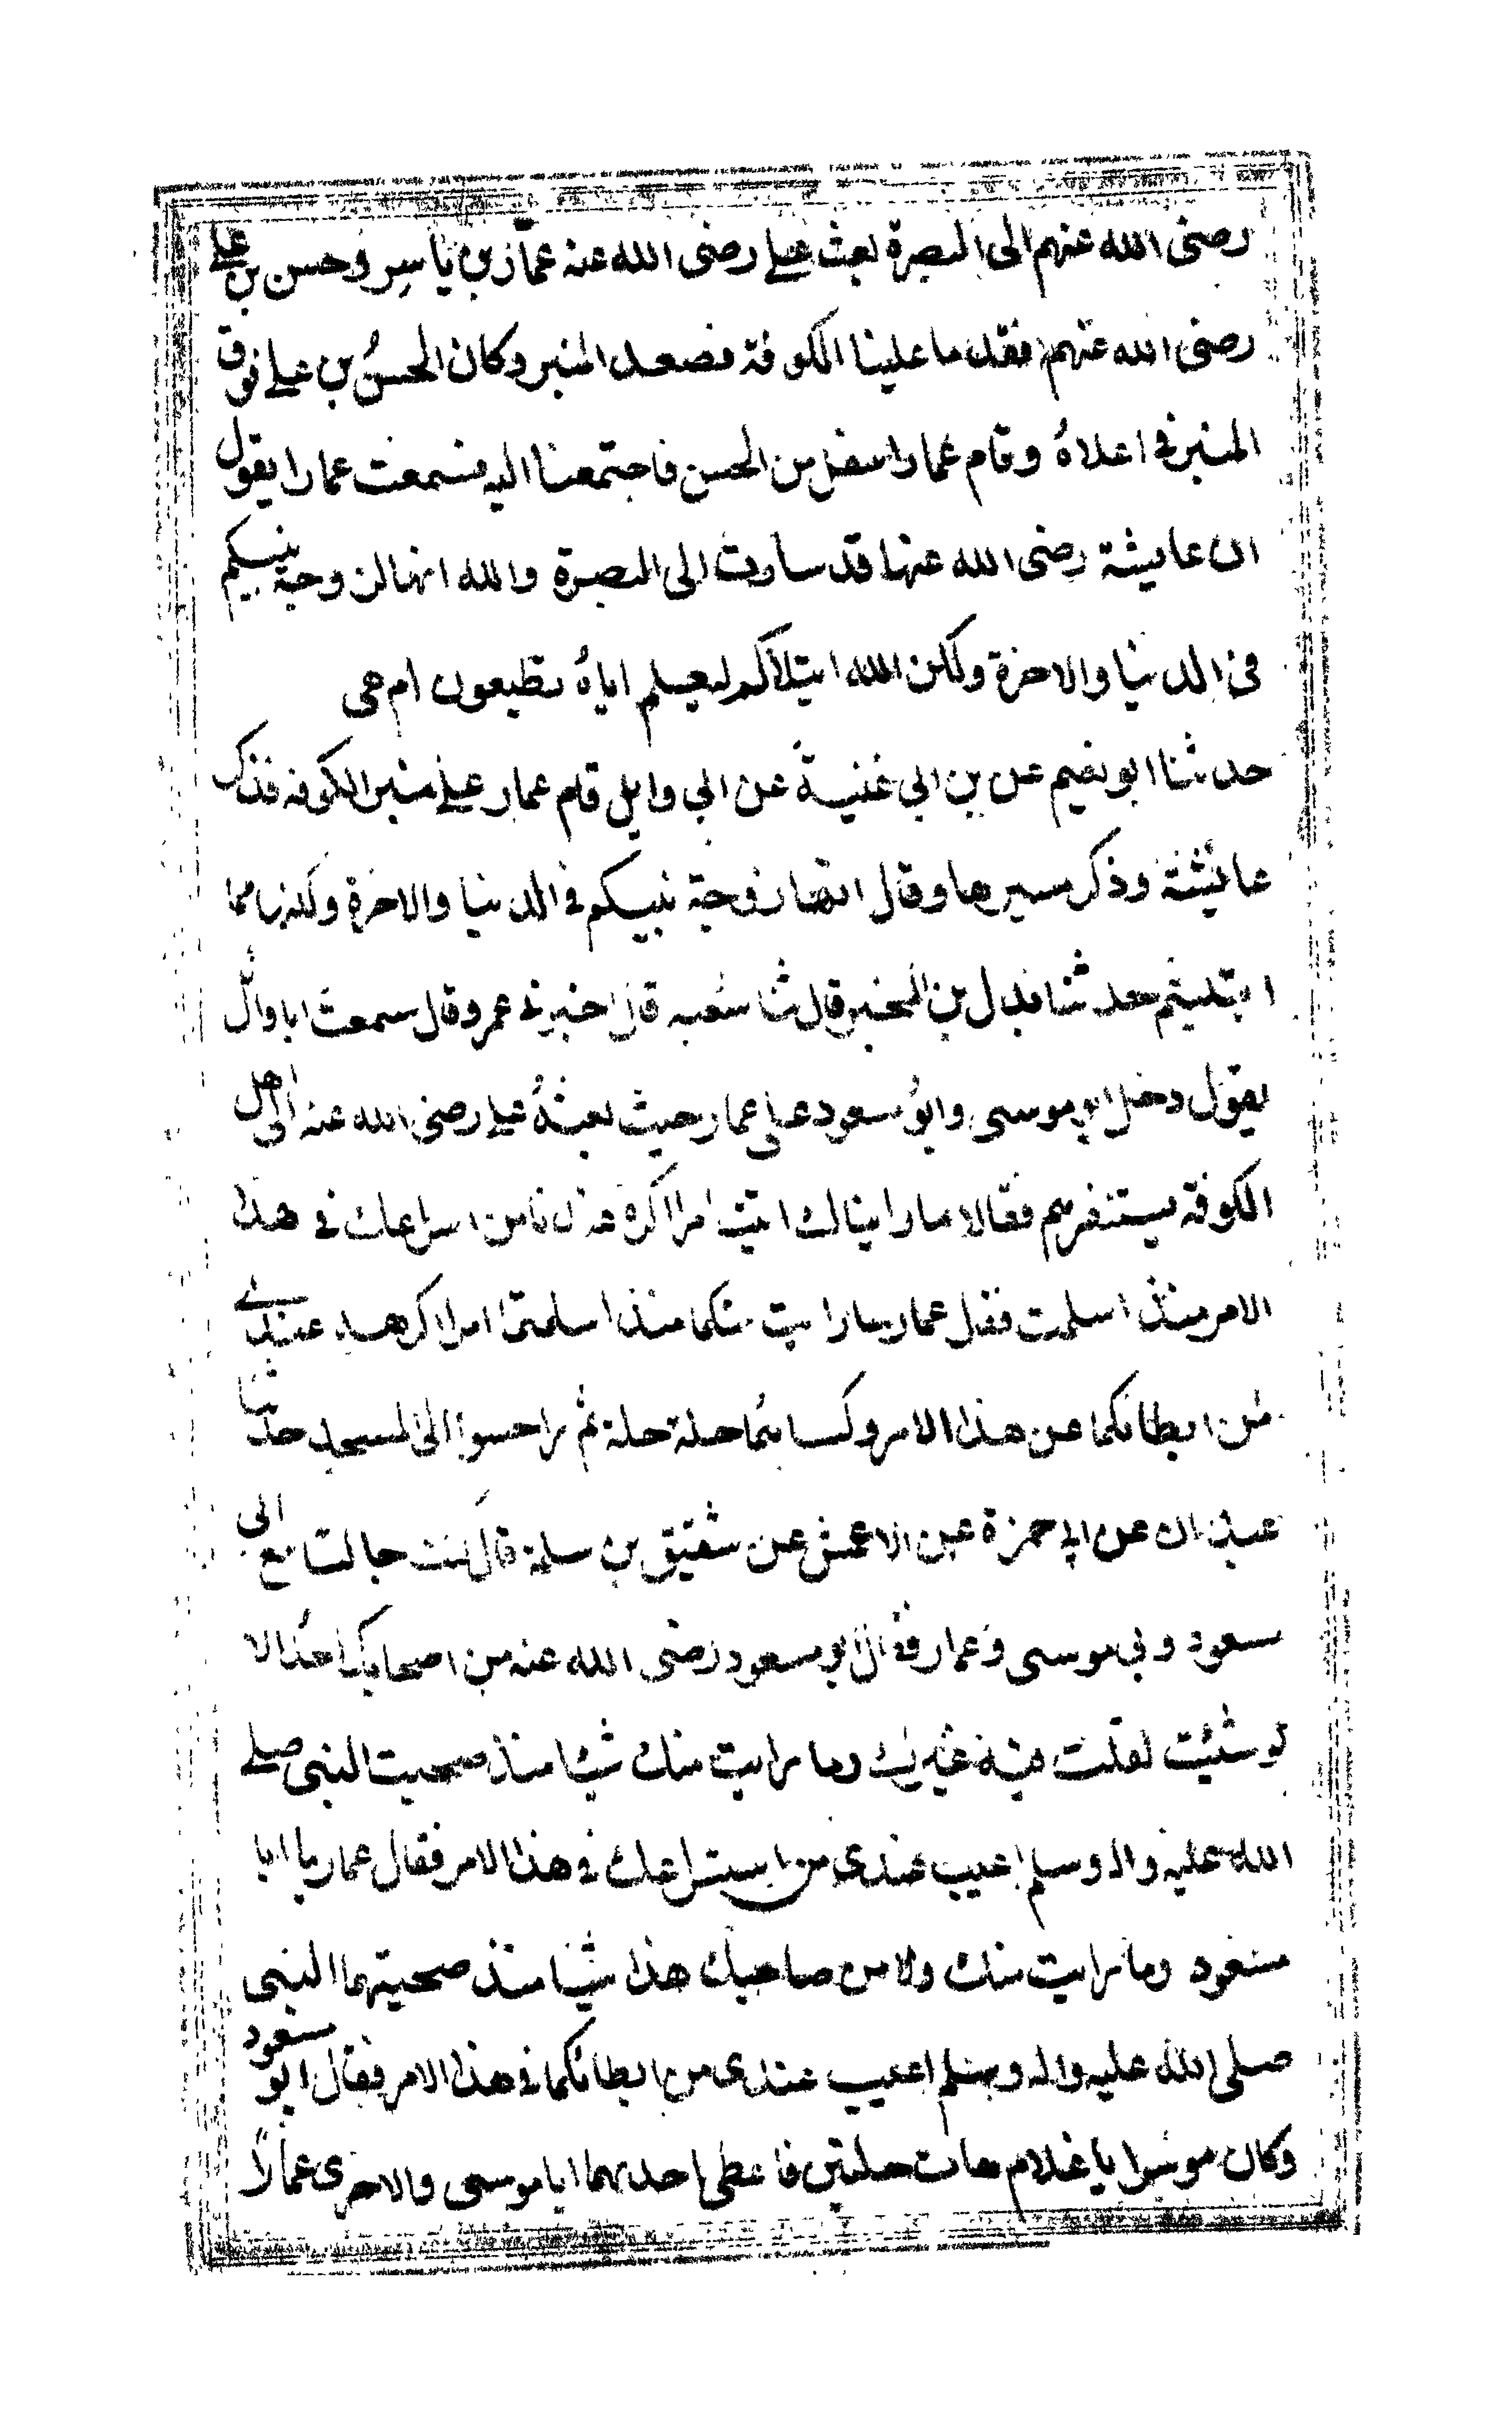 رضى الله عنهم الى البصرة بعث على رضى الله عنه عمّار بن ياسر وحسن بن على
رضى الله عنهم فقدما علينا الكوفة فصعد المنبر وكان الحسنُ بن على فوق
المنبر فى اعلاهُ وقام عمار اسفل من الحسن فاجتمعنا اليه فسمعت عمارا يقول
ان عايشة رضى الله عنها قد سارت الى البصرة والله انها لزوجة نبيكم
فى الدنيا والاخرة ولكن الله ابتلاكم ليعلم اياهُ تطيعون ام هى
حدثنا ابو نعيم عن بن ابى غنية عن ابى وايل قام عمار على منبر الكوفه فذكر
عائشة وذكر مسيرها وقال انها زوجة نبيكم فى الدنيا والاخرة ولكنها مما
ابتليتم حدثنا بدل بن المحبر قال ثنا شعبه قال اخبرنى عمرو قال سمعت ابا وائل
يقول دخل ابو موسى وابوُ مسعود على عمار حيث بعثهُ على رضى الله عنه الى اهل
الكوفة يستنفرهم فقالا ما رايناك اتيت امرا اكره عندنا من اسراعك فى هذا
الامر منذ اسلمت فقال عمار ما رايت منكما منذ اسلمتما امرا اكره عندى
من ابطائكما عن هذا الامر وكساهُما حلة حلة ثم راحوا الى المسجد حدثنا
عبدان عن ابى حمزة عن الاعمش عن شقيق بن سلمة قال كنت جالسا مع ابى
مسعود وبى موسى وعمار فقال ابو مسعود رضى الله عنه من اصحابك احدُ الا
لو شئت لقلت فيه غيرك وما رايت منك شيئا منذ صحبت النبى صلى
الله عليه واله وسلم اعيب عندى من استسراعك فى هذا الامر فقال عمار يا ابا
مسعود وما رايت منك ولا من صاحبك هذا شيئا منذ صحبتهما النبى
صلى الله عليه واله وسلم اعيب عندى من ابطائكما فى هذا الامر فقال ابو مسعود
وكان موسرا يا غلام هات حلتين فاعطى احدهما ابا موسى والاخرى عمارًا